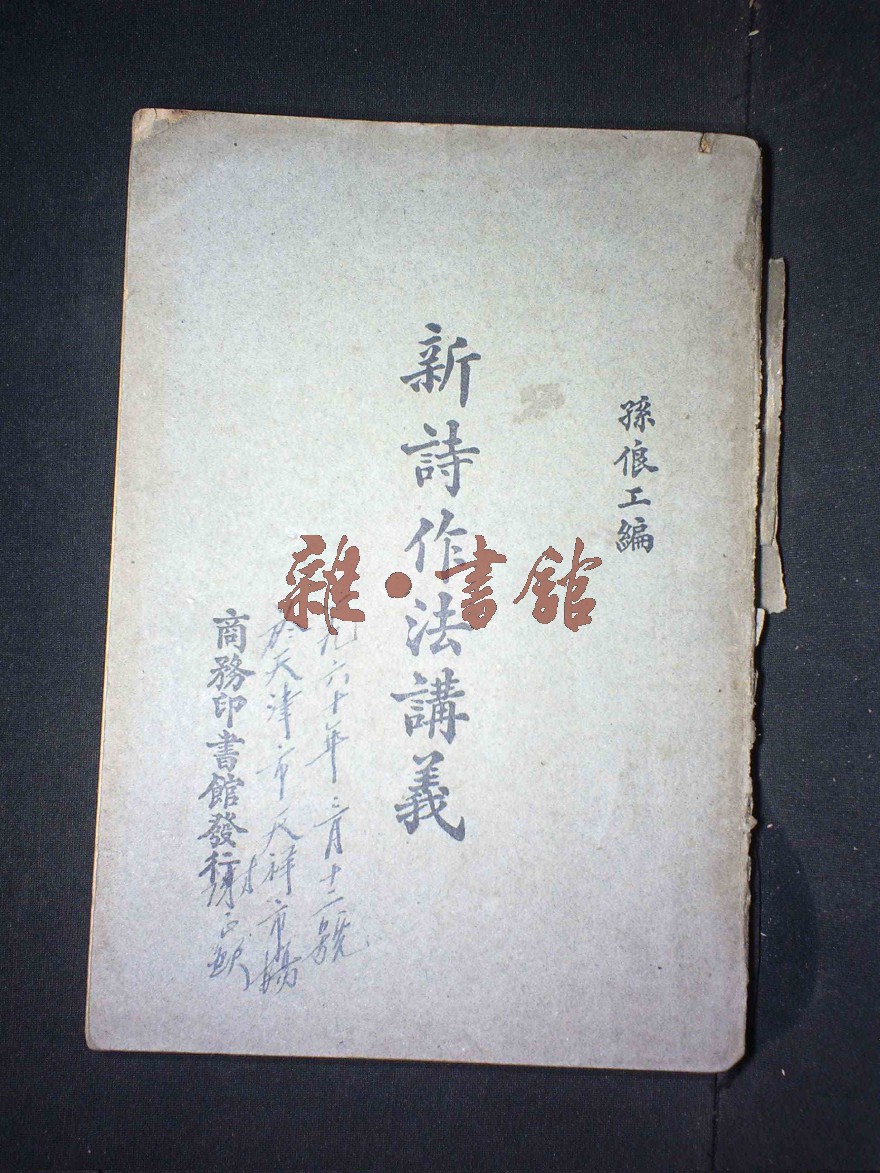 孫俍工編
新詩作法講義
九六十年三月十二號
於天津市天祥市場
謝
商務印書館發行
雜·書館